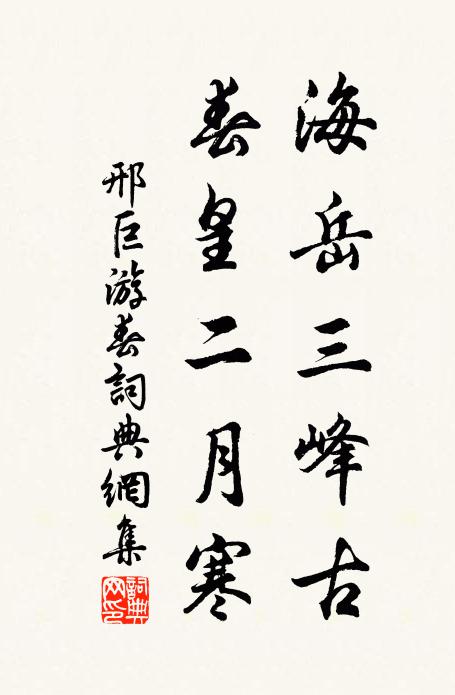 海岳三峰古
春皇二月寒
邢巨游春詞典網集
詞典網印